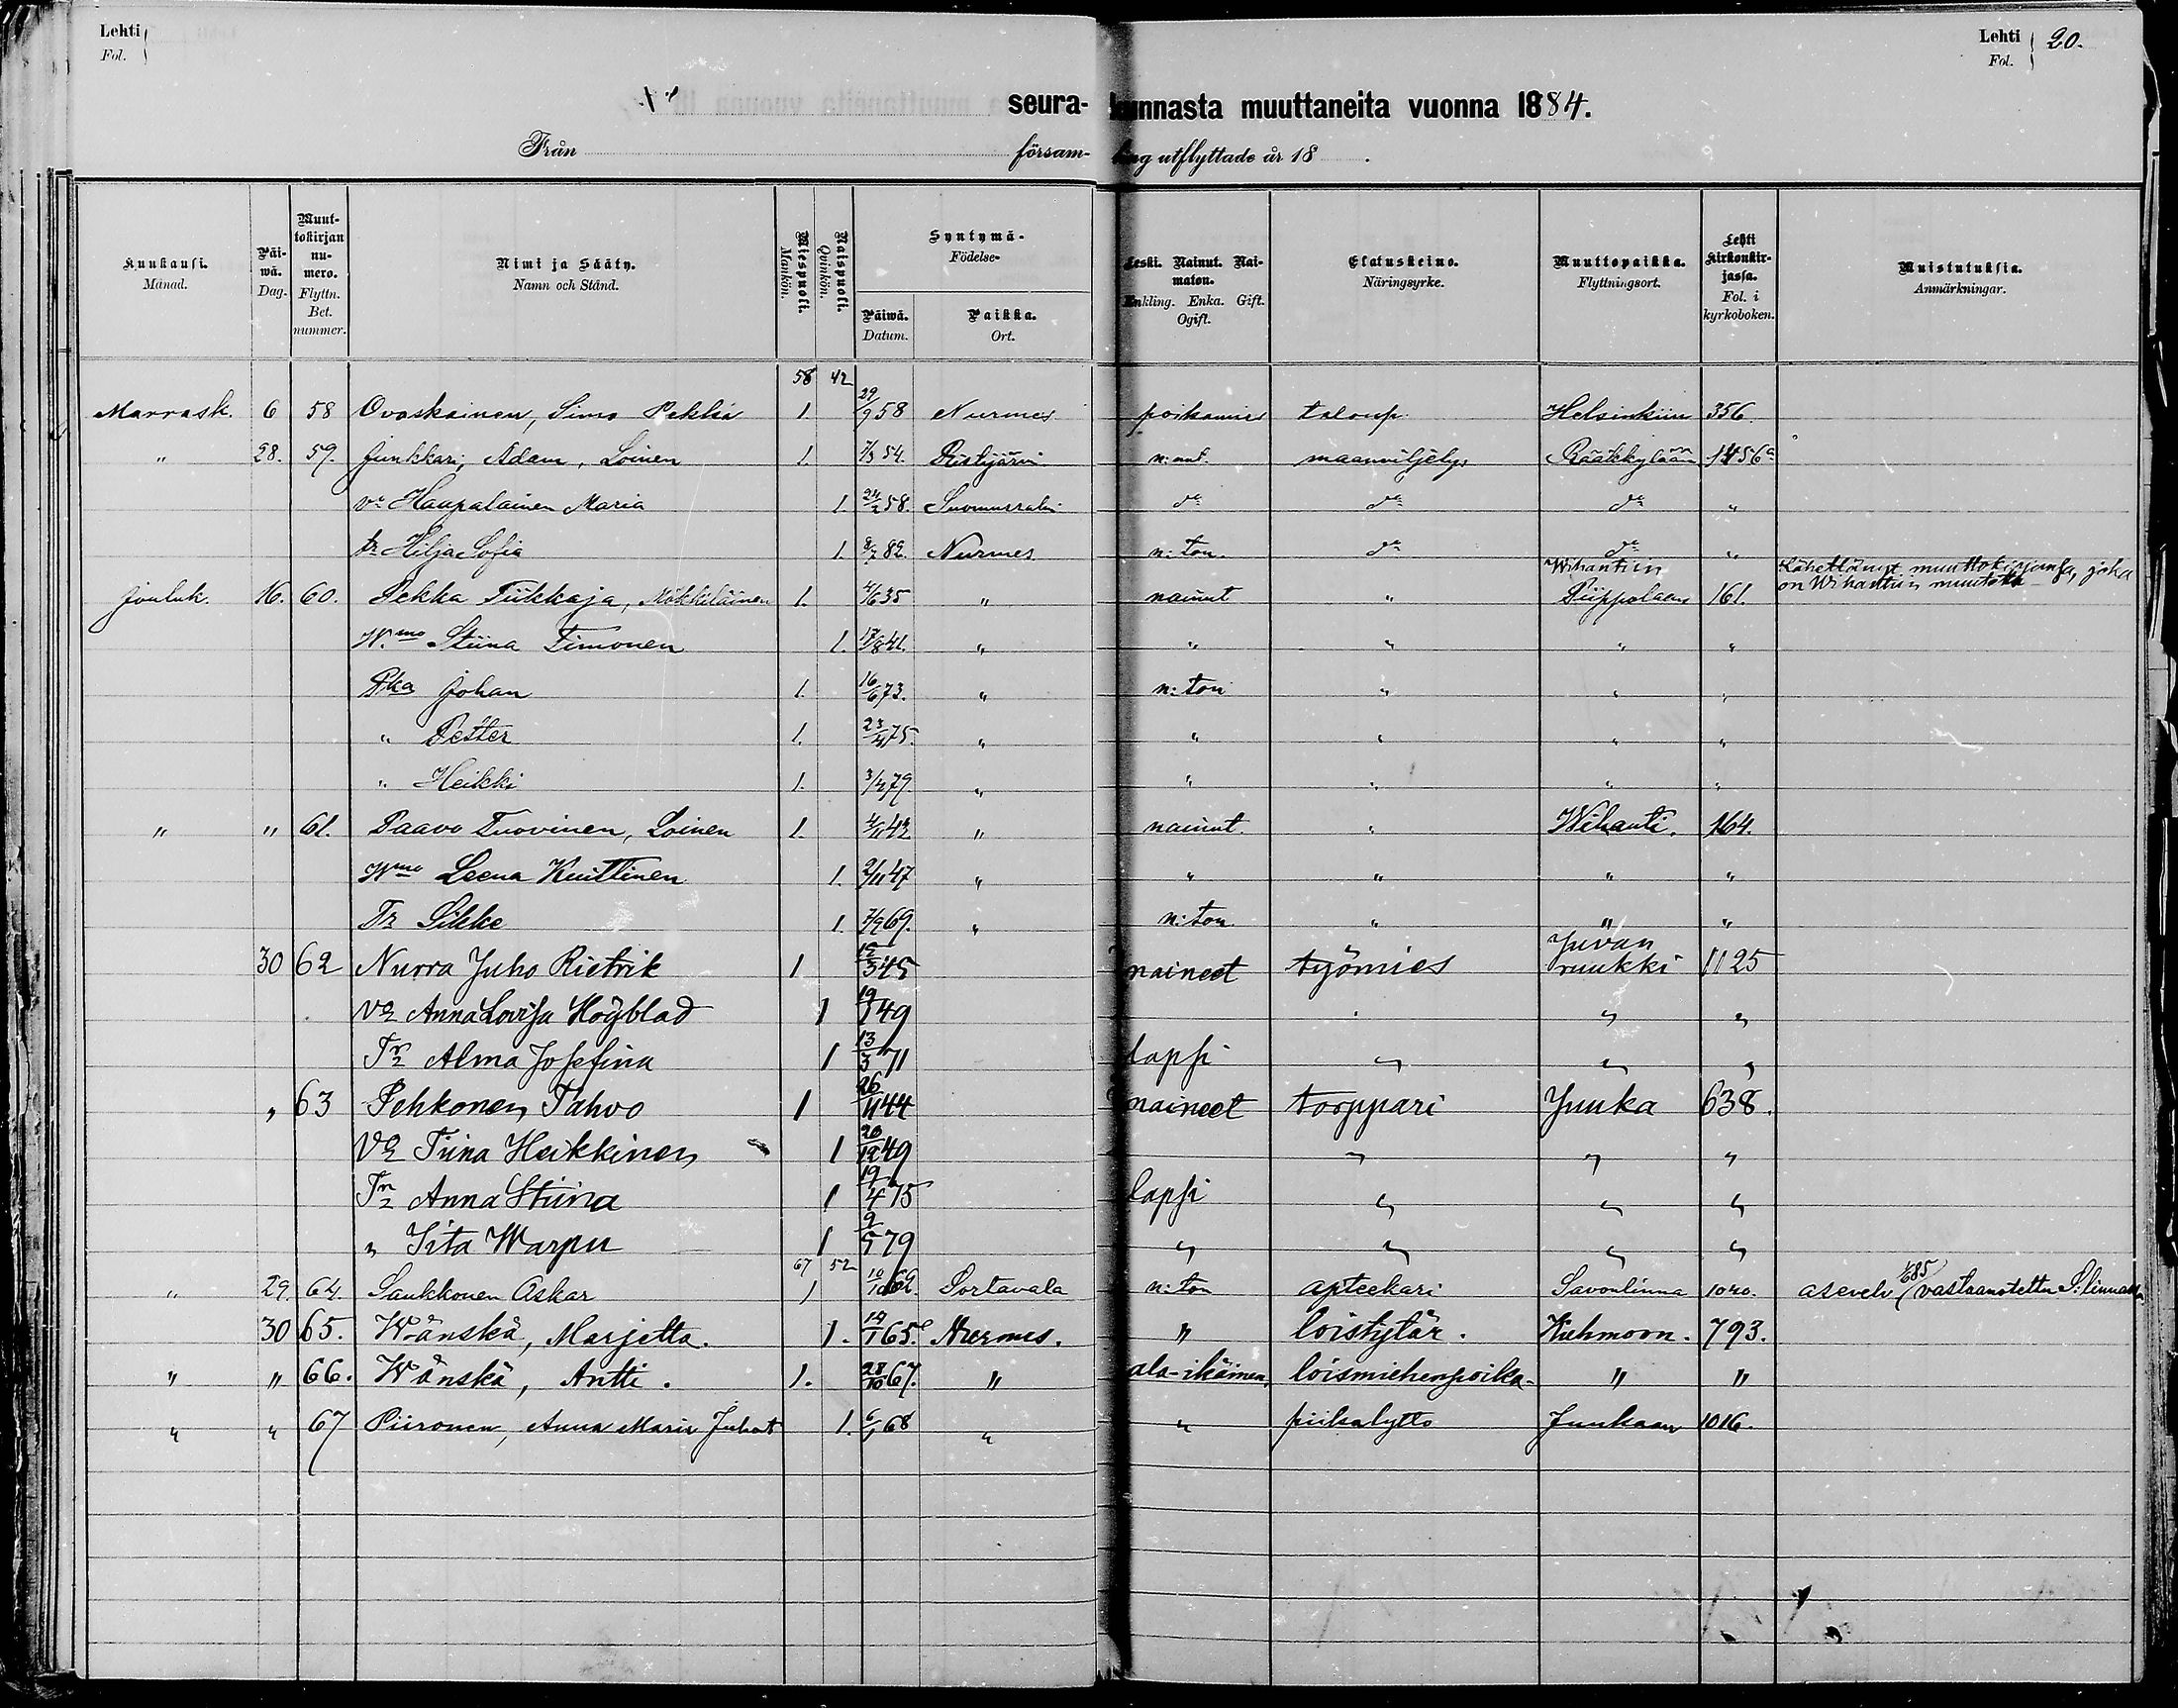 Lehti
Fol.
Lehti
Fol.
20.
seura-kunnasta muuttaneita vuonna 1884.
Från försam-ling utflyttade år 18
Kuukausi.
Månad.
Päi-
wä.
Dag.
Muut-
tokirjan
nu-
mero.
Flyttn.
Bet.
nummer.
Nimi ja Sääty.
Namn och Stånd.
Miespuoli.
Mankön.
Naispuoli.
Qvinkön.
Syntymä-
Födelse-
Päiwä.
Datum.
Paikka.
Ort.
Leski. Nainut. Nai-
maton.
Enkling. Enka. Gift.
Ogift.
Elatuskeino.
Näringsyrke.
Muuttopaikka.
Flyttningsort.
Lehti
kirkonkir-
jassa.
Fol. i
kyrkoboken.
Muistutuksia.
Anmärkningar.
58 42
Marrask. 6 58 Ovaskainen, Simo Pekka 1. 29/9 58 Nurmes poikamies talonp. Helsinkiin 356.
" 28. 59. Junkkari, Adam, Loinen 1. 7/3 54. Ristijärvi n:nut. maanviljelys Rääkkylään 1456a
vo Haapalainen Maria 1. 24/2 58. Suomussalmi do do do "
tr Hilja Sofia 1. 8/7 82. Nurmes n:ton. do do "
Wihantiin
Jouluk. 16. 60. Pekka Tiikkaja, Mökkiläinen 1. 4/6 35 " nainut " Piippolaan 161. Lähettänyt muuttokirjansa, joka
on Wihantiin muutettu
Wmo Stiina Timonen 1. 17/8 41. " " " " "
Pka Johan 1. 16/6 73. " n:ton " " "
" Petter 1. 23/4 75. " " " " "
" Heikki 1. 3/2 79. " " " " "
" " 61. Paavo Tuovinen, Loinen 1. 4/11 42 " nainut. " Wihanti. 164.
Wmo Leena Kuittinen 1. 9/11 47 " " " " "
Tr Sikke 1. 7/9 69. " n:ton " " "
Juvan
30 62 Nurra Juho Rietrik 1 12/3 45 naineet työmies ruukki 1125
Vo Anna Lovisa Högblad 1 19/1 49 " "
Tr Alma Josefina 1 13/3 71 lapsi " " "
" 63 Pehkonen Tahvo 1 26/11 44 naineet torppari Juuka 638.
Vo Tiina Heikkinen 1 20/12 49 " " "
Tr Anna Stiina 1 19/4 75 lapsi " " "
" Iita Warpu 1 9/5 79 " " " "
67 52
" 29. 64. Saukkonen Oskar 1 10/10 62. Sortavala n:ton apteekari Savonlinna 1040. asevelv. (vastaanotettu S:linnassa
30 65. Wänskä, Marjetta. 1. 12/1 65. Nurmes. " loistytär. Kuhmoon. 793.
" " 66. Wänskä, Antti. 1. 28/10 67. " ala-ikäinen, loismiehenpoika " "
" " 67 Piironen, Anna Maria Juhont 1. 6/1 68 " " piikatyttö Juukaan 1016.